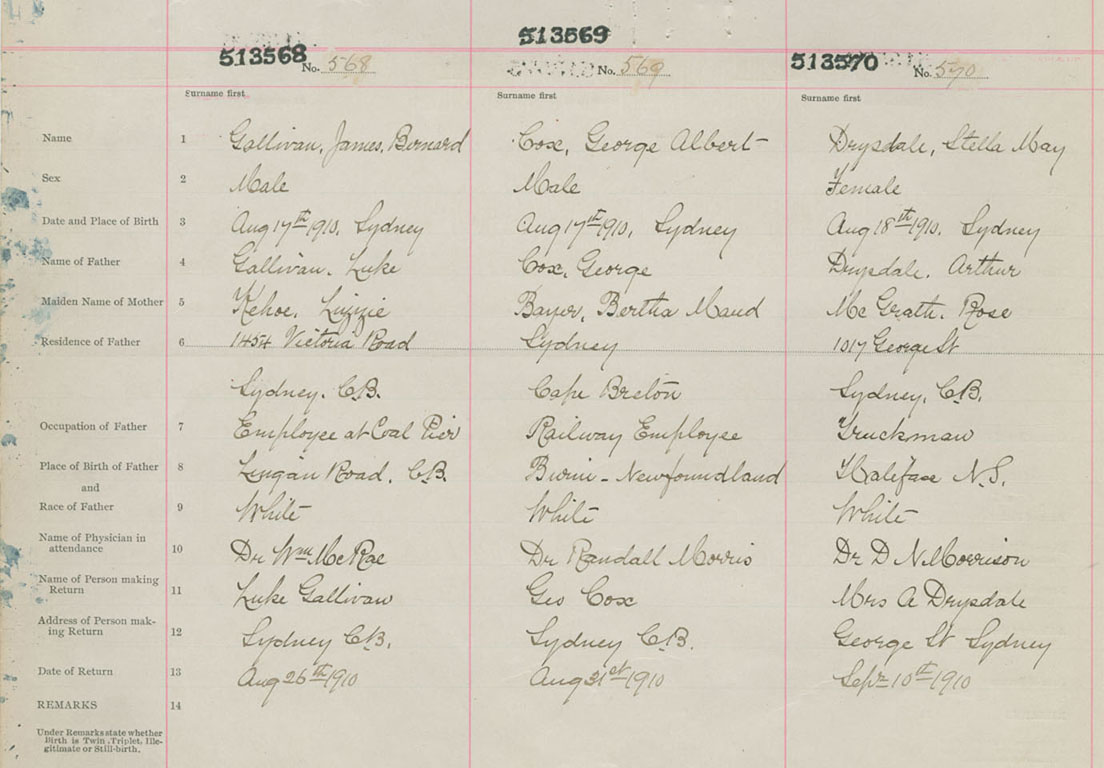 513568 No. 568
513569 No. 569
513570 No. 570
Surname first Surname first Surname first
Name 1 Gallivan, James, Bernard Cox, George Albert Drysdale, Stella May
Sex 2 Male Male Female
Date and Place of Birth 3 Aug 17th 1910, Sydney Aug 17th 1910, Sydney Aug 18th 1910, Sydney
Name of Father 4 Gallivan, Luke Cox, George Drysdale, Arthur
Maiden Name of Mother 5 Kehoe, Lizzie Bertha Maud Mc Grath, Rose
Residence of Father 6 Victoria Road Sydney 1017 George St
Sydney. C.B. Cape Breton Sydney, C.B.
Occupation of Father 7 Employee at Coal Pier Railway Employee Truckman
Place of Birth of Father 8 Lingan Road, C.B. Newfoundland Halifax N.S.
and
Race of Father 9 White White White
Name of Physician in
attendance 10 Dr Wm McRae Dr Randall Morris Dr D N Morrison
Name of Person making
Return 11 Luke Gallivan Geo Cox Mrs A Drysdale
Address of Person mak-
ing Return 12 Sydney C.B. Sydney C.B. George St Sydney
Date of Return 13 Aug 26th 1910 Aug 31st 1910 Sept 10th 1910
REMARKS 14
Under Remarks state whether
Birth is Twin, Triplet, Ille-
gitimate or Still-birth.